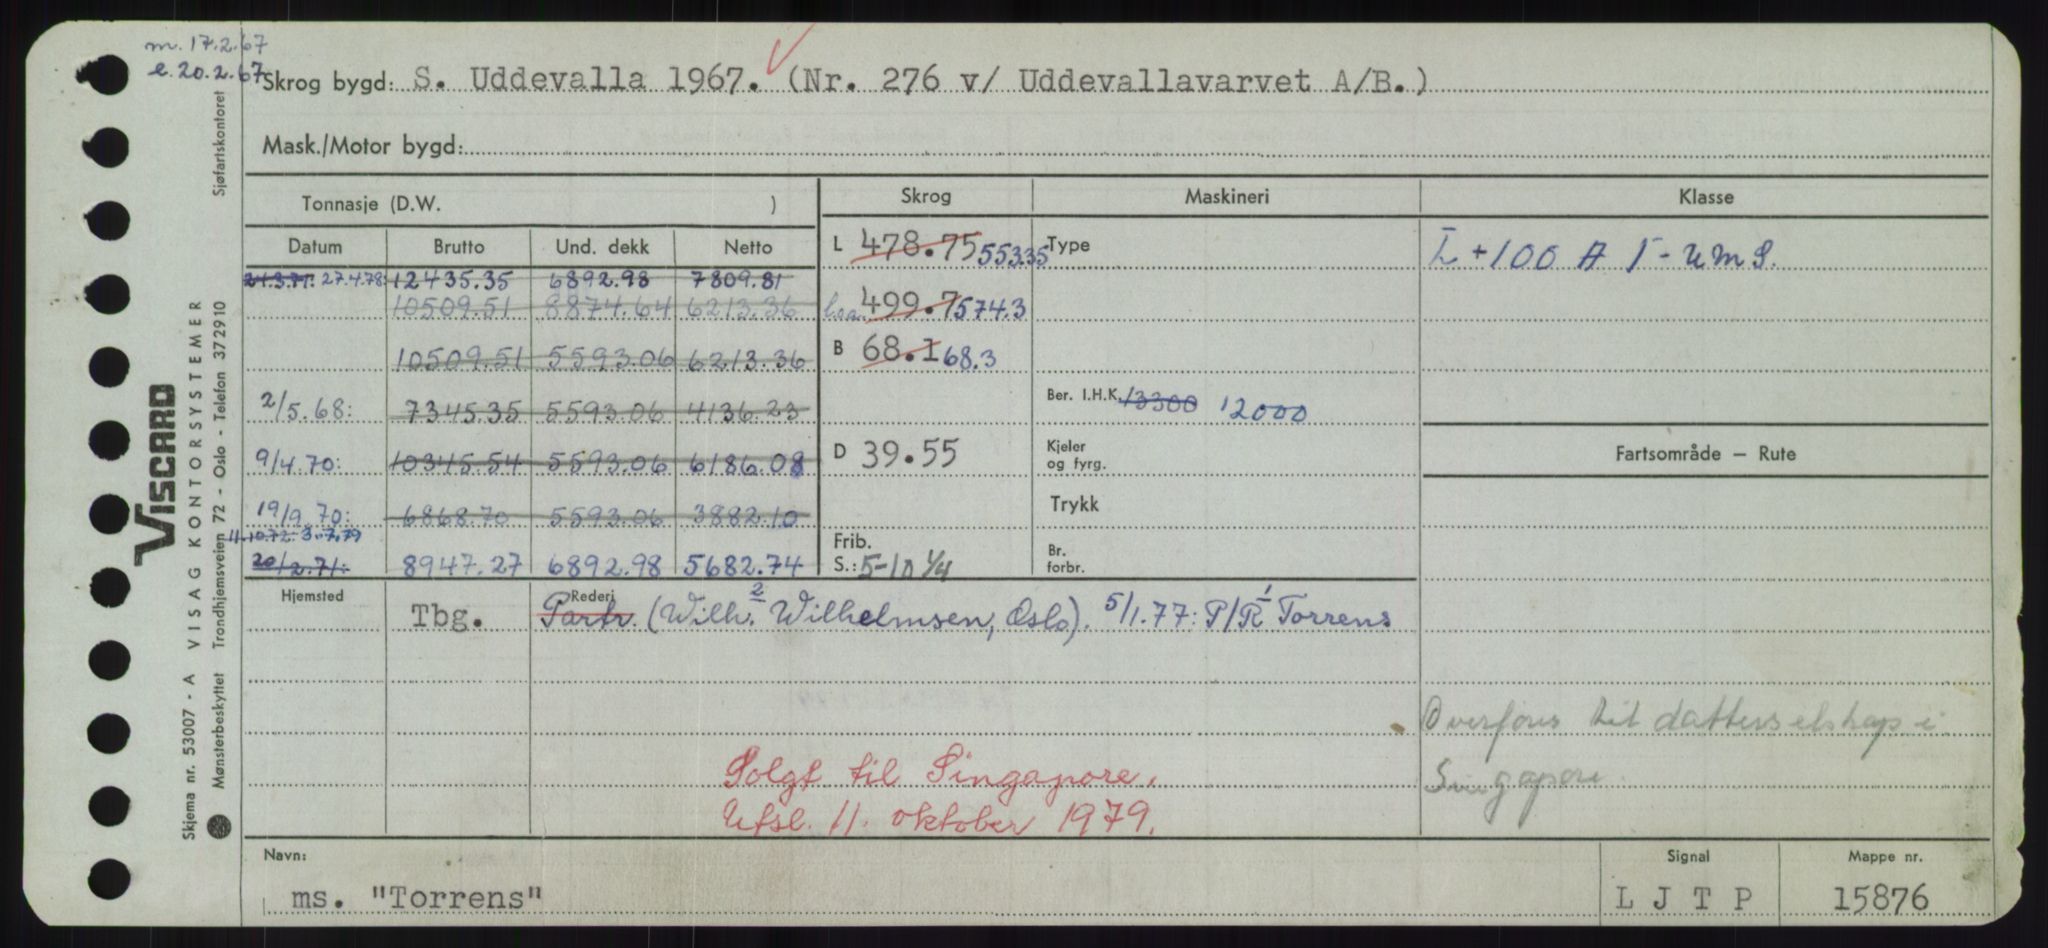 m. 17.2.67
e. 20.2.67
Skrog bygd: S. Uddevalla 1967. (Nr. 276 v/ Uddevallavarvet A/B.)
Mask./Motor bygd:
Tonnasje (D.W. )
Skrog Maskineri Klasse
Datum Brutto Und. dekk Netto
L 478.75 553.35 Type
24.3.77. 27.4.78: 12435.35 6892.98 7809.81
10509.51 8874.64 6213.36
loa. 499.7 574.3
10509.51 5593.06 6213.36
B 68.1 68.3
2/5.68: 7345.35 5593.06 4136.23
Ber. I.H.K. 13300 12000
9/4.70: 10345.54 5593.06 6186.08
D 39.55
Kjeler
og fyrg.
Fartsområde – Rute
Trykk
19/9.70: 6868.70 5593.06 3882.10
11.10.72. 3.7.79
20/2.71: 8947.27 6892.98 5682.74
Frib.
S.: 5-10 1/4
Br.
forbr.
Hjemsted Rederi
Tbg. Partr. (Wilh. 2 Wilhelmsen, Oslo). 5/1.77: P/R 1 Torrens
+100 A 1 - UMS.
Overføres til datterselskap i
Singapore.
Solgt til Singapore.
Utsl. 11. oktober 1979.
Navn: ms. "Torrens"
Signal L J T P
Mappe nr. 15876
VISCARD
VISAG KONTORSYSTEMER
Sjøfartskontoret
Trondhjemsveien 72 - Oslo - Telefon 372910
Skjema nr. 53007 - A
Mønsterbeskyttet